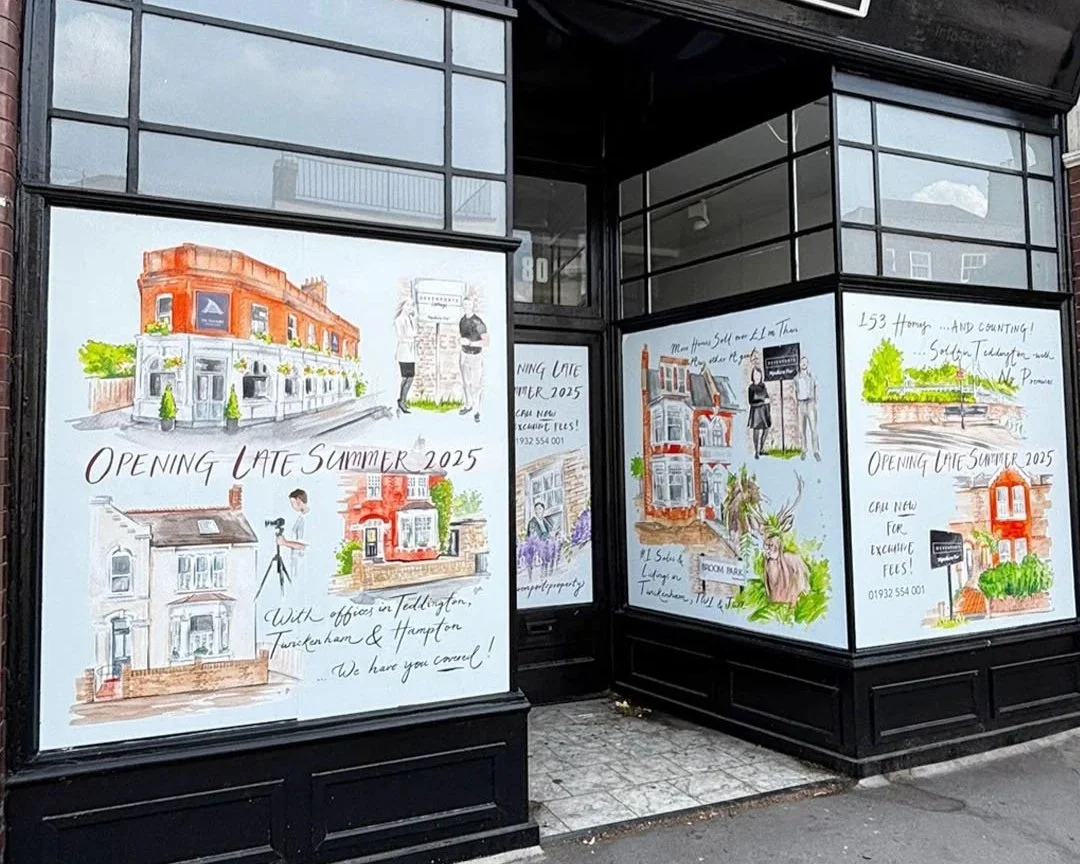 OPENING LATE SUMMER 2025
With offices in Teddington,
Twickenham & Hampton
... We have you covered!
80
NING LATE
MER 2025
CALL NOW
EXCLUSIVE FEES!
1932 554 001
More Homes Sold over £1m Than
Any other Agent
#1 Sales &
Lettings in
Twickenham, TW1 &
BROOM PARK
153 Homes ... AND COUNTING!
... Sold in Teddington with
Premiums
OPENING LATE SUMMER 2025
CALL NOW
FOR
EXCLUSIVE
FEES!
01932 554 001